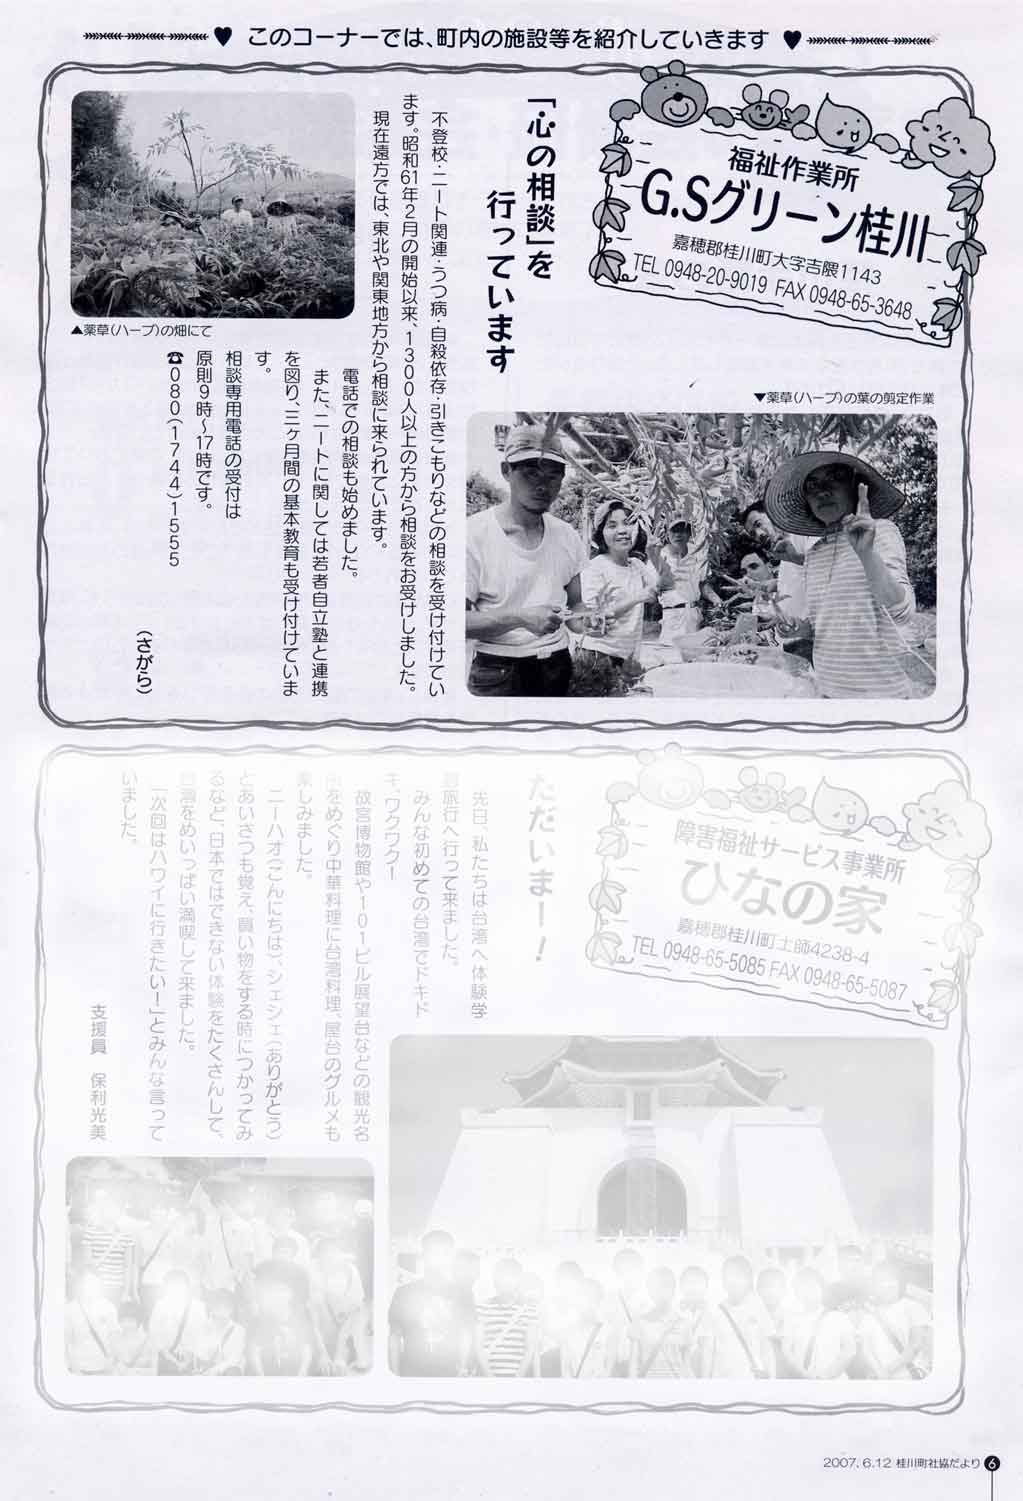 このコーナーでは、町内の施設等を紹介していきます
福祉作業所
G.Sグリーン桂川
嘉穂郡桂川町大字吉隈1143
TEL 0948-20-9019 FAX 0948-65-3648
「心の相談」を
行っています
不登校・ニート関連・うつ病・自殺依存・引きこもりなどの相談を受け付けてい
ます。昭和61年2月の開始以来、1300人以上の方から相談をお受けしました。
現在遠方では、東北や関東地方から相談に来られています。
電話での相談も始めました。
また、ニートに関しては若者自立塾と連携
を図り、三ヶ月間の基本教育も受け付けていま
す。
相談専用電話の受付は
原則9時〜17時です。
☎080(1744)1555
(さがら)
▲薬草(ハーブ)の畑にて
▼薬草(ハーブ)の葉の剪定作業
障害福祉サービス事業所
ひなの家
嘉穂郡桂川町土師4238-4
TEL 0948-65-5085 FAX 0948-65-5087
ただいま!!
先日、私たちは台湾へ体験学
習旅行へ行って来ました。
みんな初めての台湾でドキド
キ、ワクワク!
故宮博物館や101ビル展望台などの観光名
所をめぐり中華料理に台湾料理、屋台のグルメも
楽しみました。
ニーハオ(こんにちは)、シェシェ(ありがとう)
とあいさつも覚え、買い物をする時につかってみ
るなど、日本ではできない体験をたくさんして、
台湾をめいっぱい満喫して来ました。
「次回はハワイに行きたい!」とみんな言って
いました。
支援員 保利光美
2007.6.12 桂川町社協だより 6